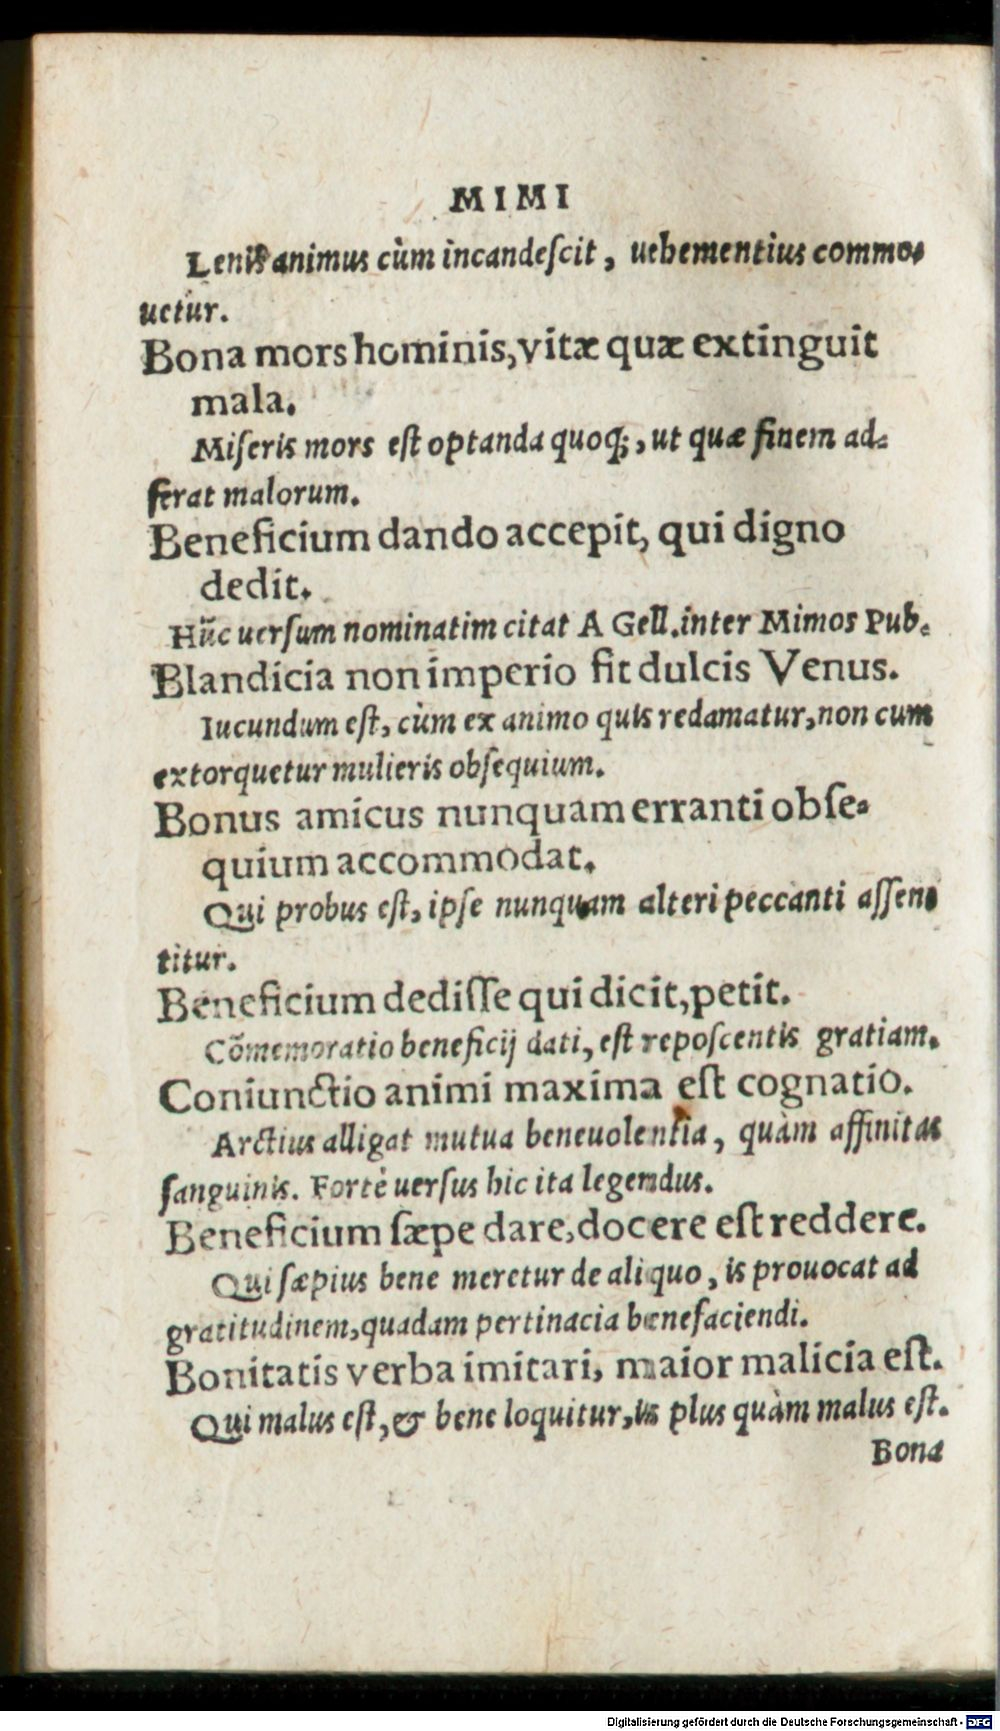 MIMI
Lenis animus cùm incandeſcit, uehementius commo⸗
uetur.
Bona mors hominis, vitæ quæ extinguit
mala.
Miſeris mors eſt optanda quoq;, ut quæ finem ad⸗
ferat malorum.
Beneficium dando accepit, qui digno
dedit.
Hũc uerſum nominatim citat A Gell. inter Mimos Pub.
Blandicia non imperio fit dulcis Venus.
Iucundum eſt, cùm ex animo quis redamatur, non cum
extorquetur mulieris obſequium.
Bonus amicus nunquam erranti obſe⸗
quium accommodat.
Qui probus eſt, ipſe nunquam alteri peccanti aſſen⸗
titur.
Beneficium dediſſe qui dicit, petit.
Cõmemoratio beneficij dati, eſt repoſcentis gratiam.
Coniunctio animi maxima eſt cognatio.
Arctius alligat mutua beneuolentia, quàm affinitas
ſanguinis. Fortè uerſus hic ita legendus.
Beneficium ſæpe dare, docere eſt reddere.
Qui ſæpius bene meretur de aliquo, is prouocat ad
gratitudinem, quadam pertinacia benefaciendi.
Bonitatis verba imitari, maior malicia eſt.
Qui malus eſt, & bene loquitur, is plus quàm malus eſt.
Bona
Digitalisierung gefördert durch die Deutsche Forschungsgemeinschaft - DFG